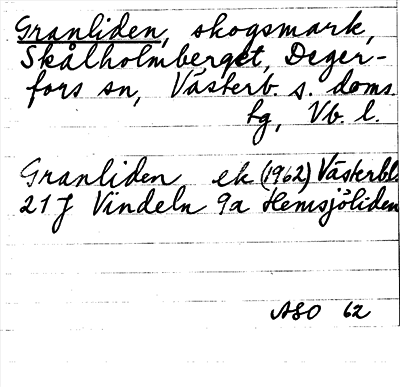 Granliden, skogsmark,
Skålholmberget, Deger-
fors sn, Västerb. s. doms.
tg, Vb. l.
Granliden ek (1962) Västerbl.
21 J Vindeln 9a Hemsjöliden
ASO 62